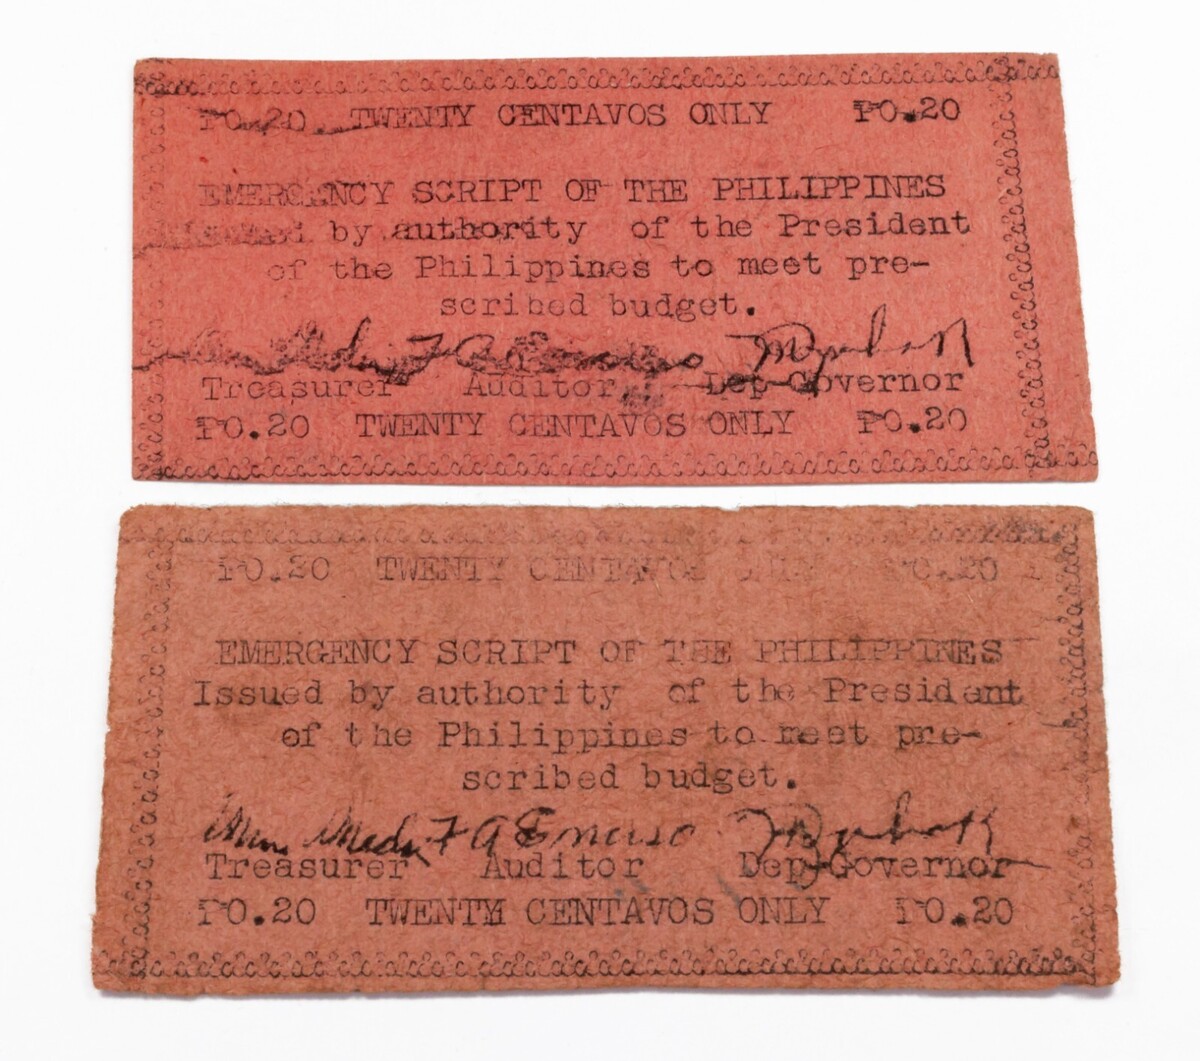 ₱0.20 TWENTY CENTAVOS ONLY ₱0.20
EMERGENCY SCRIPT OF THE PHILIPPINES
Issued by authority of the President
of the Philippines to meet pre-
scribed budget.
Treasurer Auditor Dep-Governor
₱0.20 TWENTY CENTAVOS ONLY ₱0.20
₱0.20 TWENTY CENTAVOS ONLY ₱0.20
EMERGENCY SCRIPT OF THE PHILIPPINES
Issued by authority of the President
of the Philippines to meet pre-
scribed budget.
Treasurer Auditor Dep-Governor
₱0.20 TWENTY CENTAVOS ONLY ₱0.20